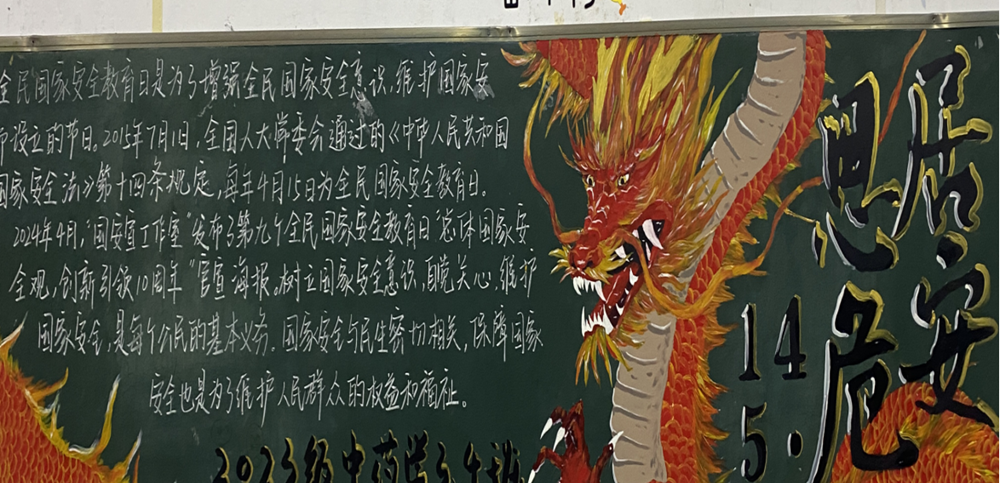 全民国家安全教育日是为了增强全民国家安全意识,维护国家安
设立的节日。2015年7月1日,全国人大常委会通过的《中华人民共和国
国家安全法》第十四条规定,每年4月15日为全民国家安全教育日。
2024年4月,“国安宣工作室”发布了第九个全民国家安全教育日“总体国家安
全观,创新引领10周年”官宣海报。树立国家安全意识,自觉关心、维护
国家安全,是每个公民的基本义务。国家安全与民生密切相关,保障国家
安全也是为了维护人民群众的权益和福祉。
居安
思危
14
5.
2023级中药学34班